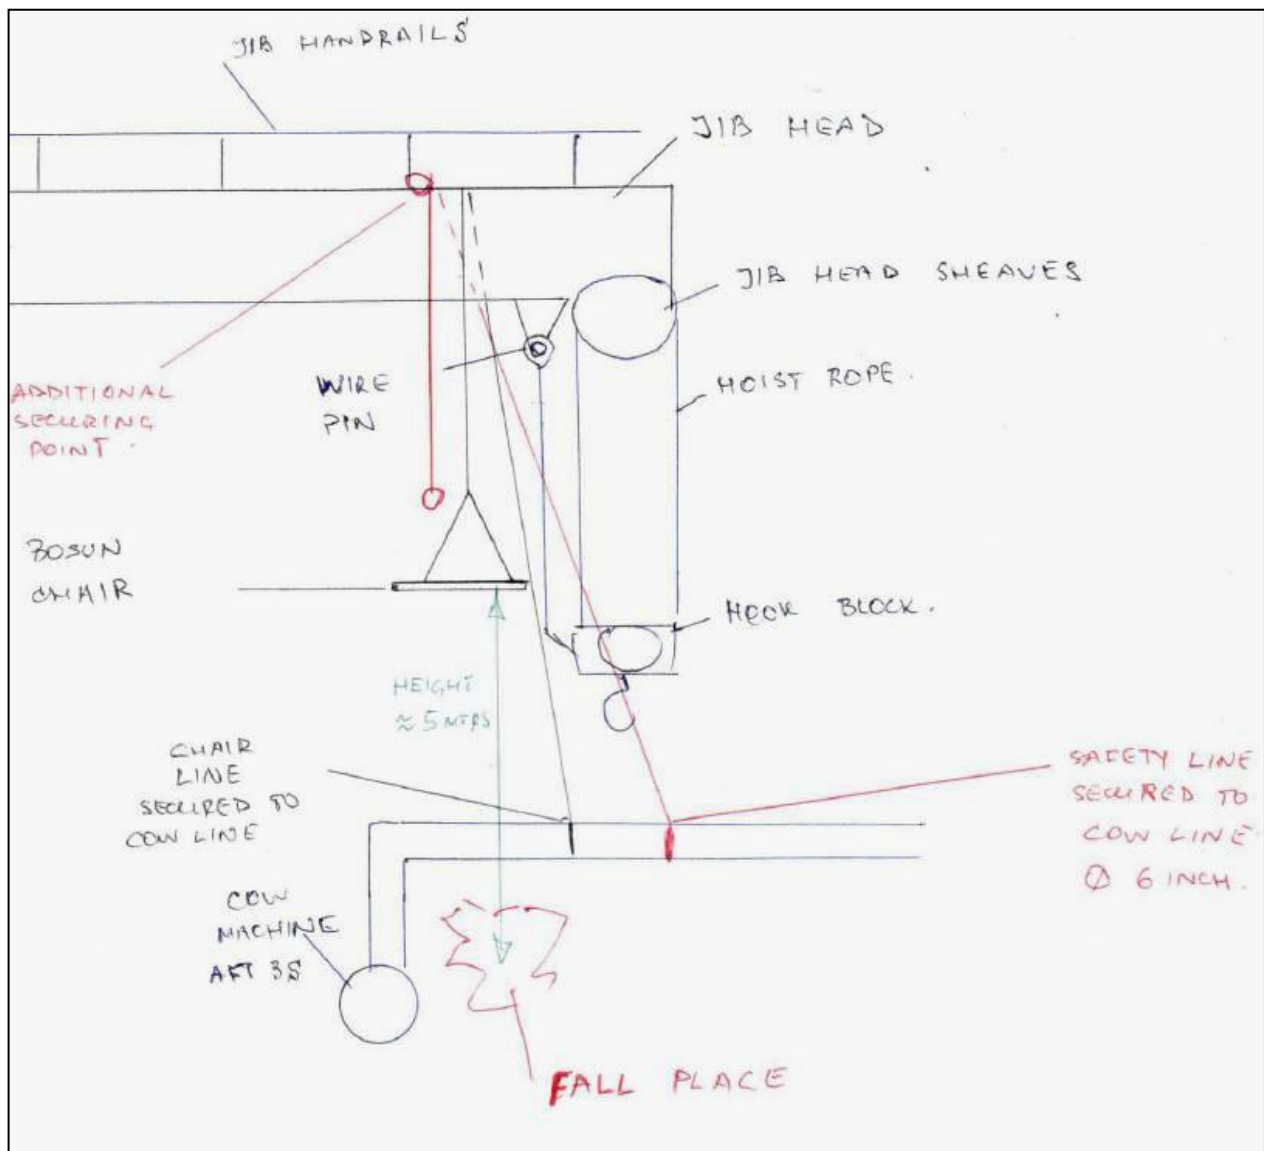 JIB HANDRAILS
JIB HEAD
JIB HEAD SHEAVES
ADDITIONAL
SECURING
POINT.
WIRE
PIN
HOIST ROPE.
BOSUN
CHAIR
HOOK BLOCK.
HEIGHT
≈ 5 MTRS
CHAIR
LINE
SECURED TO
COW LINE
SAFETY LINE
SECURED TO
COW LINE
Ø 6 INCH.
COW
MACHINE
AFT 3S
FALL PLACE